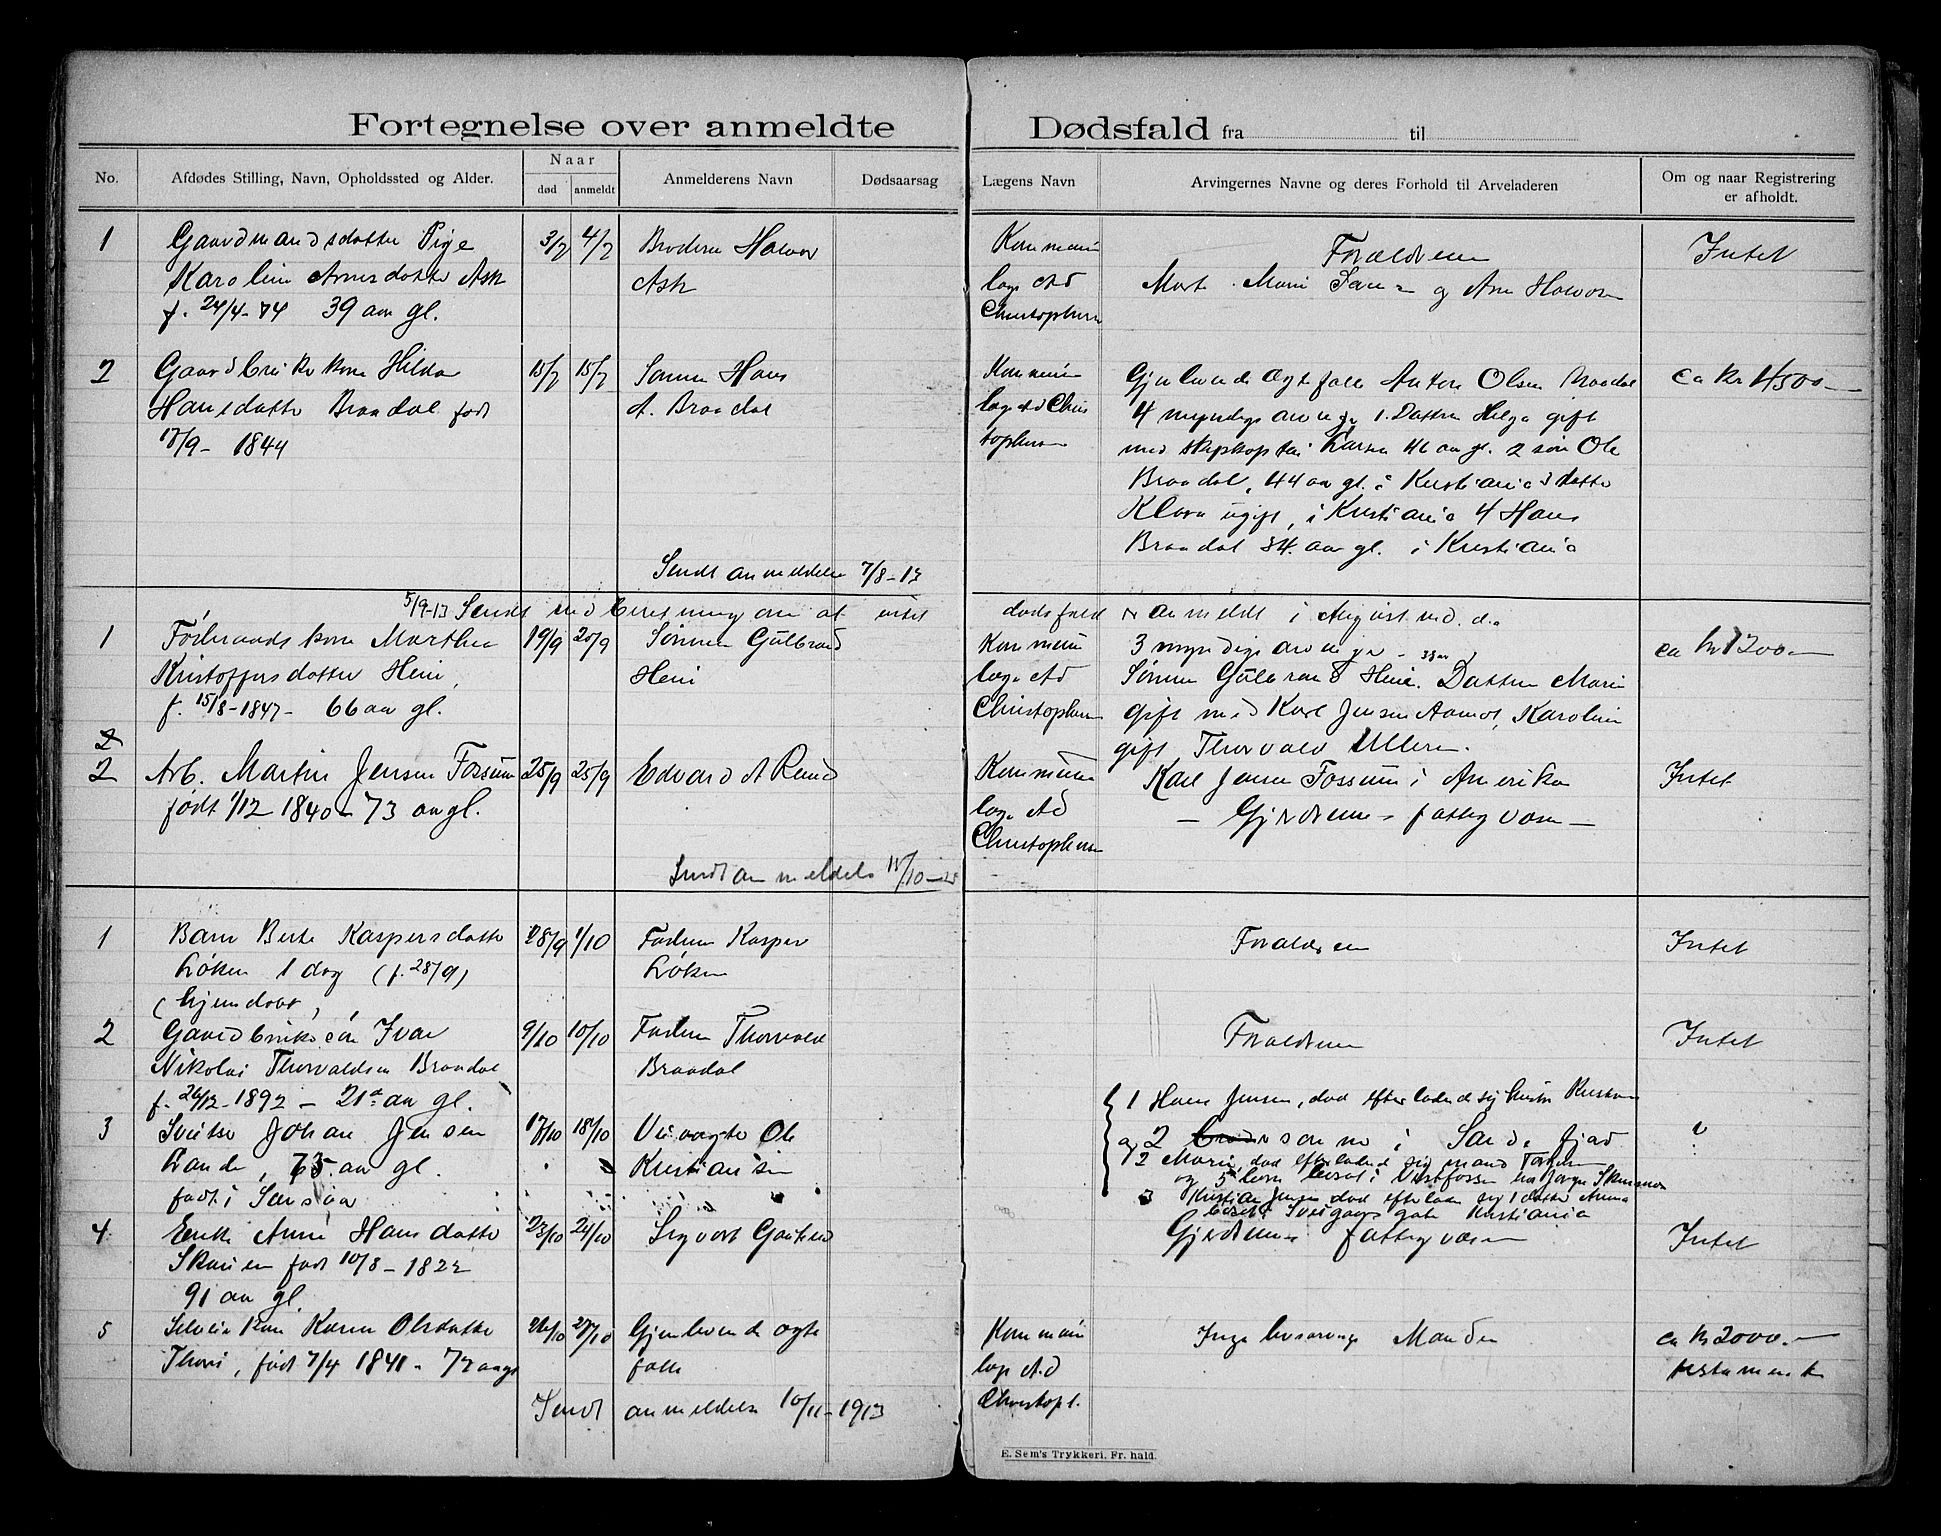 Fortegnelse over anmeldte Dødsfald fra til
No.
Afdødes Stilling, Navn, Opholdssted og Alder.
Naar
død
anmeldt
Anmelderens Navn
Dødsaarsag
Lægens Navn
Arvingernes Navne og deres Forhold til Arveladeren
Om og naar Registrering
er afholdt.
1 Gaardmandsdatter Pige 3/7 4/7 Broderen Halvor Kommuni Forældrene Intet
Karoline Arnesdatter Ask Ask læge Ad Marte Marie og Arne Halvorsen
f. 24/4-74 39 aar gl. Christophersen
2 Gaardbrukerkone Hilda 15/7 15/7 Sønnen Hans Kommun Gjenlevende Ægtefælle Anton Olsen Braadal ca kr 4500-
Hansdatter Braadal født A. Braadal læge Ad Chris 4 myndige arvinger 1. Datteren Helga gift
17/9 - 1844 tophersen med skipskaptein Larsen 46 aar gl. 2 søn Ole
Braadal, 44 aar gl. i Kristiania 3 datter
Klara ugift, i Kristiania 4 Hans
Braadal 34 aar gl. i Kristiania
Sendt anmeldelse 7/8-13
5/9-13 Sendt med Beretning om at intet dødsfald er anmeldt i August md.
1 Føderaadskone Marthea 19/9 20/9 Sønnen Gulbrand Kommun 3 myndige arvinger ca kr 1200-
Kristoffersdatter Heni, Heni læge Ad Sønnen Gulbrand Heni. Datteren Marie
f. 15/8-1847 - 66 aar gl. Christophersen gift med Karl Jensen Aamot, Karoline
2 gift Thorvald Ulleren.
2 Arb. Martin Jensen Fossum 25/9 25/9 Edvard A Rund Kommun Karl Jensen Fossum i Amerika Intet
født 1/12 1840 - 73 aar gl. læge Ad - Gjerdrums fattigvæsen -
Christophersen
Sendt anmeldelse 11/10-13
1 Barn Berte Kaspersdatter 28/9 1/10 Faderen Kasper Forældrene Intet
Løken 1 dag (f. 28/9) Løken
(hjemdøbt)
2 Gaardbrukersøn Ivar 9/10 10/10 Faderen Thorvald Forældrene Intet
Nikolai Thorvaldsen Braadal Braadal
f. 26/12-1892 - 21 aar gl.
1 Hans Jensen, død efterladende sig hustru
3 Johan Jensen 17/10 18/10 Ole og 2 sønner i ?
75 aar gl. Kristiansen 2 Marie, død efterladende sig mand
født i og 5 børn bosat i Vestfossen
3 Kristian Jensen død efterladende sig 1 datter Anna
bosat Sveigaards gate Kristiania
4 Enke Anne Hansdatter 23/10 24/10 Sigvart Gjerdrums fattigvæsen Intet
født 10/8 - 1822
91 aar gl.
5 Selveierkone Karen Olsdatter 26/10 27/10 Gjenlevende ægte Kommun Inga livsarvinger Manden ca kr 2000.-
født 7/4 1841 - 72 aar gl fælle læge Ad testament
Christoph.
Sendt anmeldelse 10/11-1913
E. Sem's Trykkeri, Fr. hald.